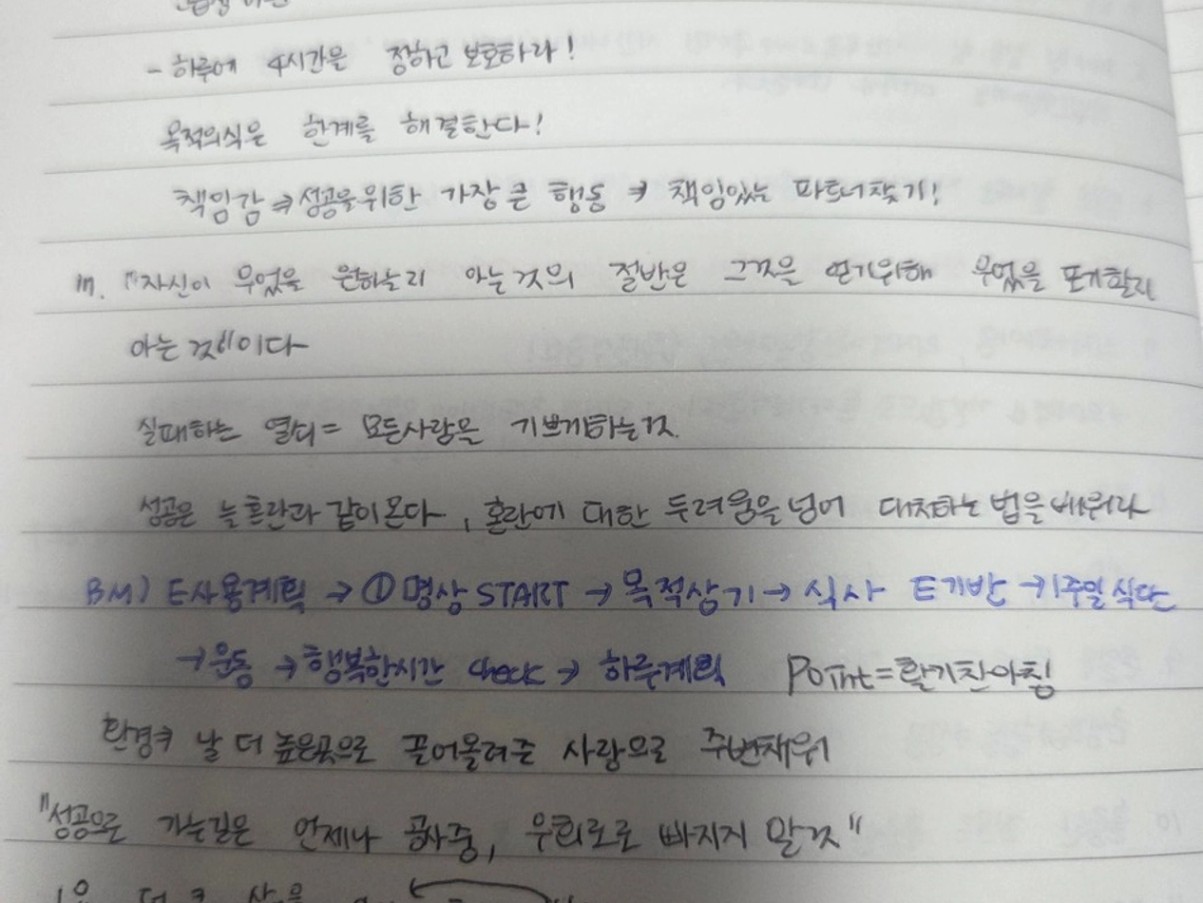 - 하루에 4시간은 정하고 보호하라!
목적의식은 한계를 해결한다!
책임감 → 성공을위한 가장 큰 행동 → 책임있는 파트너찾기!
"자신이 무엇을 원하는지 아는것의 절반은 그것을 얻기위해 무엇을 포기할지
아는 것"이다
실패하는 열쇠 = 모든사람을 기쁘게하는것
성공은 늘혼란과 같이온다, 혼란에 대한 두려움을넘어 대처하는 법을배워라
BM) E사용계획 → ① 명상 START → 목적상기 → 식사 E기반 → 1주일 식단
→ 운동 → 행복한시간 check → 하루계획 Point = 활기찬아침
환경 → 날 더 높은곳으로 끌어올려준 사람으로 주변채워
"성공으로 가는길은 언제나 공사중, 우회로로 빠지지 말것"